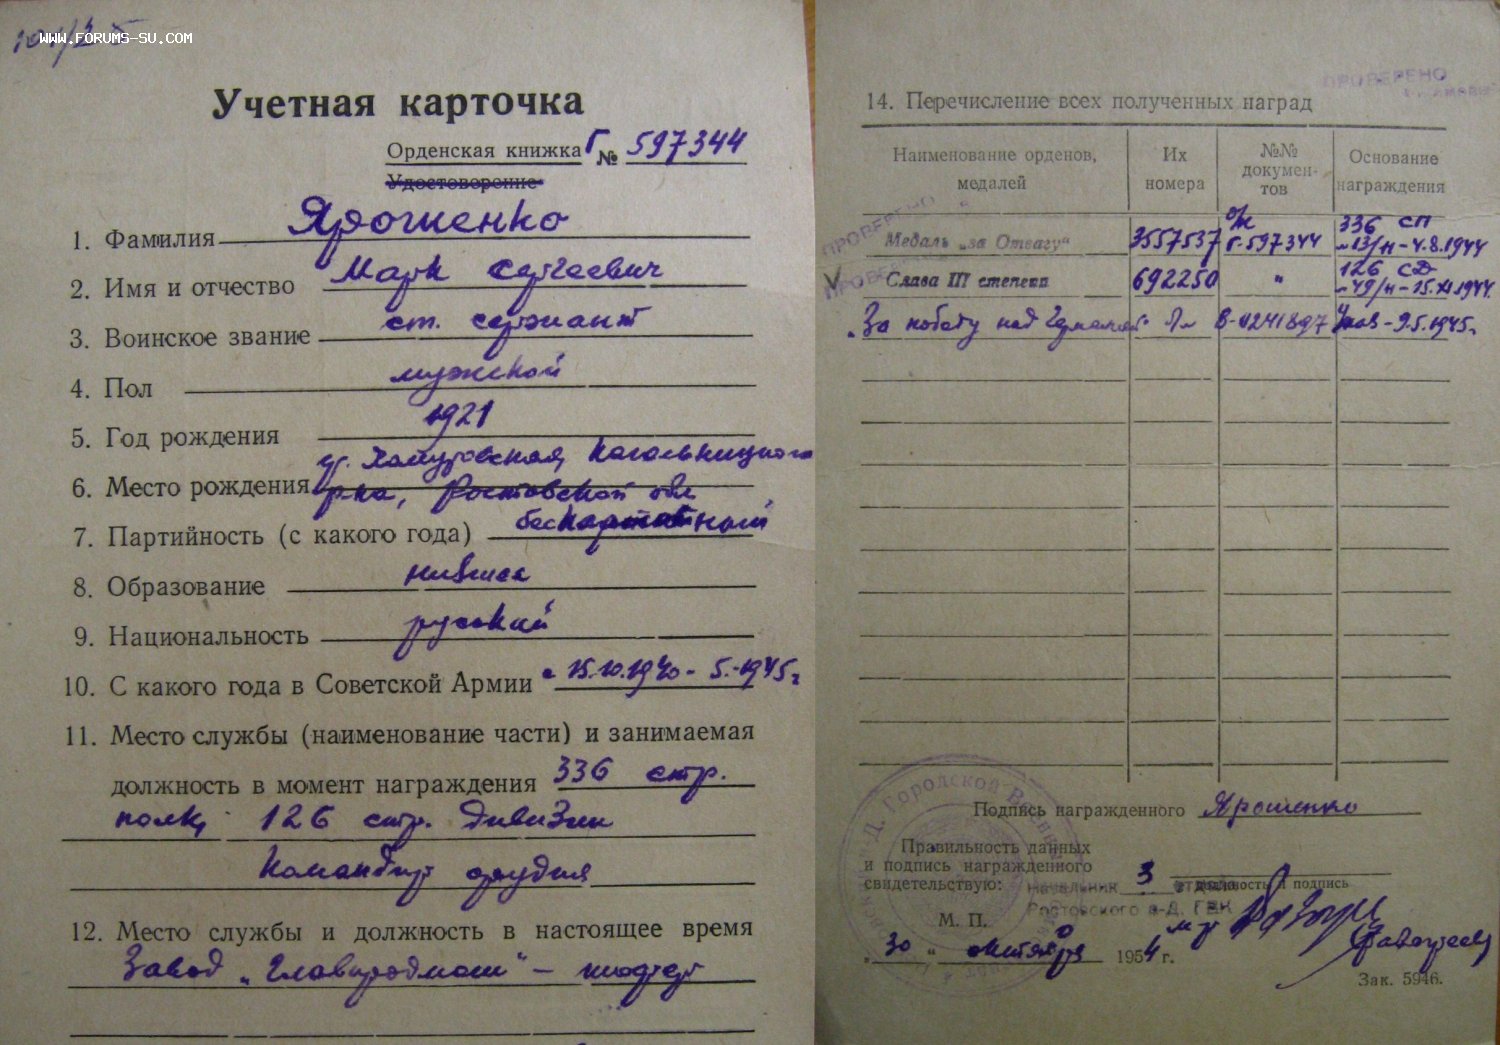 www.forums-su.com
Учетная карточка
Орденская книжка Г № 597344
Удостоверение
1. Фамилия Ярошенко
2. Имя и отчество Марк Сергеевич
3. Воинское звание ст. сержант
4. Пол мужской
5. Год рождения 1921
ст. Хомутовская, Кагальницкого
6. Место рождения р-на, Ростовской обл
7. Партийность (с какого года) беспартийный
8. Образование низшее
9. Национальность русский
10. С какого года в Советской Армии с 15.10.1940 - 5.-1945г
11. Место службы (наименование части) и занимаемая
должность в момент награждения 336 стр.
полк, 126 стр. дивизии
Командир орудия
12. Место службы и должность в настоящее время
Завод „Главпродмаш“ –
ПРОВЕРЕНО
14. Перечисление всех полученных наград
Наименование орденов, медалей Их номера №№ документов Основание награждения
ПРОВЕРЕНО
Медаль „за Отвагу“ 3557537 о/к Г-597344 336 СП –13/н–4.8.1944
Слава III степени 692250 " 126 СД –49/н–15.XI.1944.
„За победу над Германией“ В-0241897 Указ – 9.5.1945г.
Подпись награжденного Ярошенко
Правильность данных
и подпись награжденного
свидетельствую: Начальник 3 отдела
должность и подпись
Ростовского н-Д. ГВК
М. П.
„30“ октября 1954 г.
Зак. 5946.